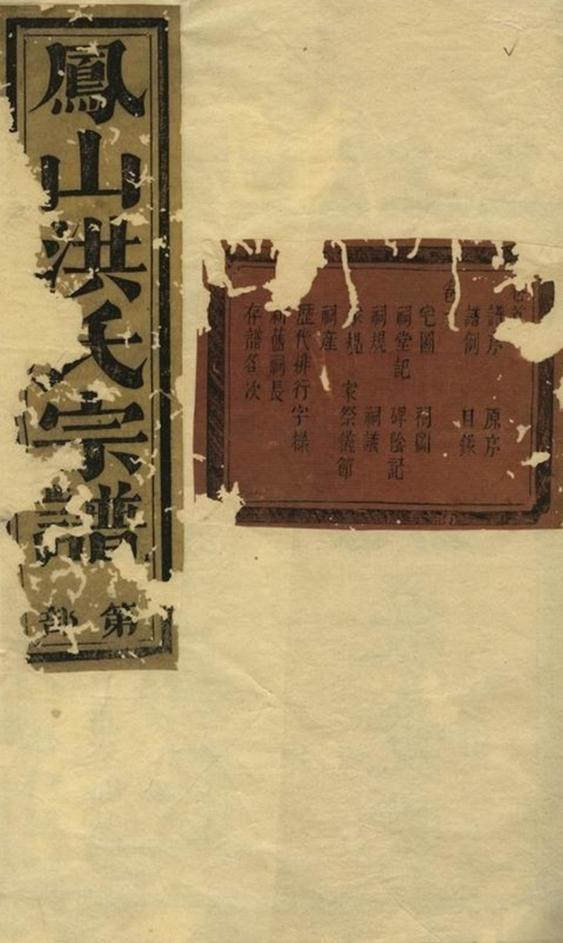 鳳山洪氏宗譜
第 部
譜序 原序
譜例 目錄
宅圖 祠圖
祠堂記 碑陰記
祠規 祠議
家規 家祭儀節
祠産
歷代排行字樣
新舊祠長
存譜名次